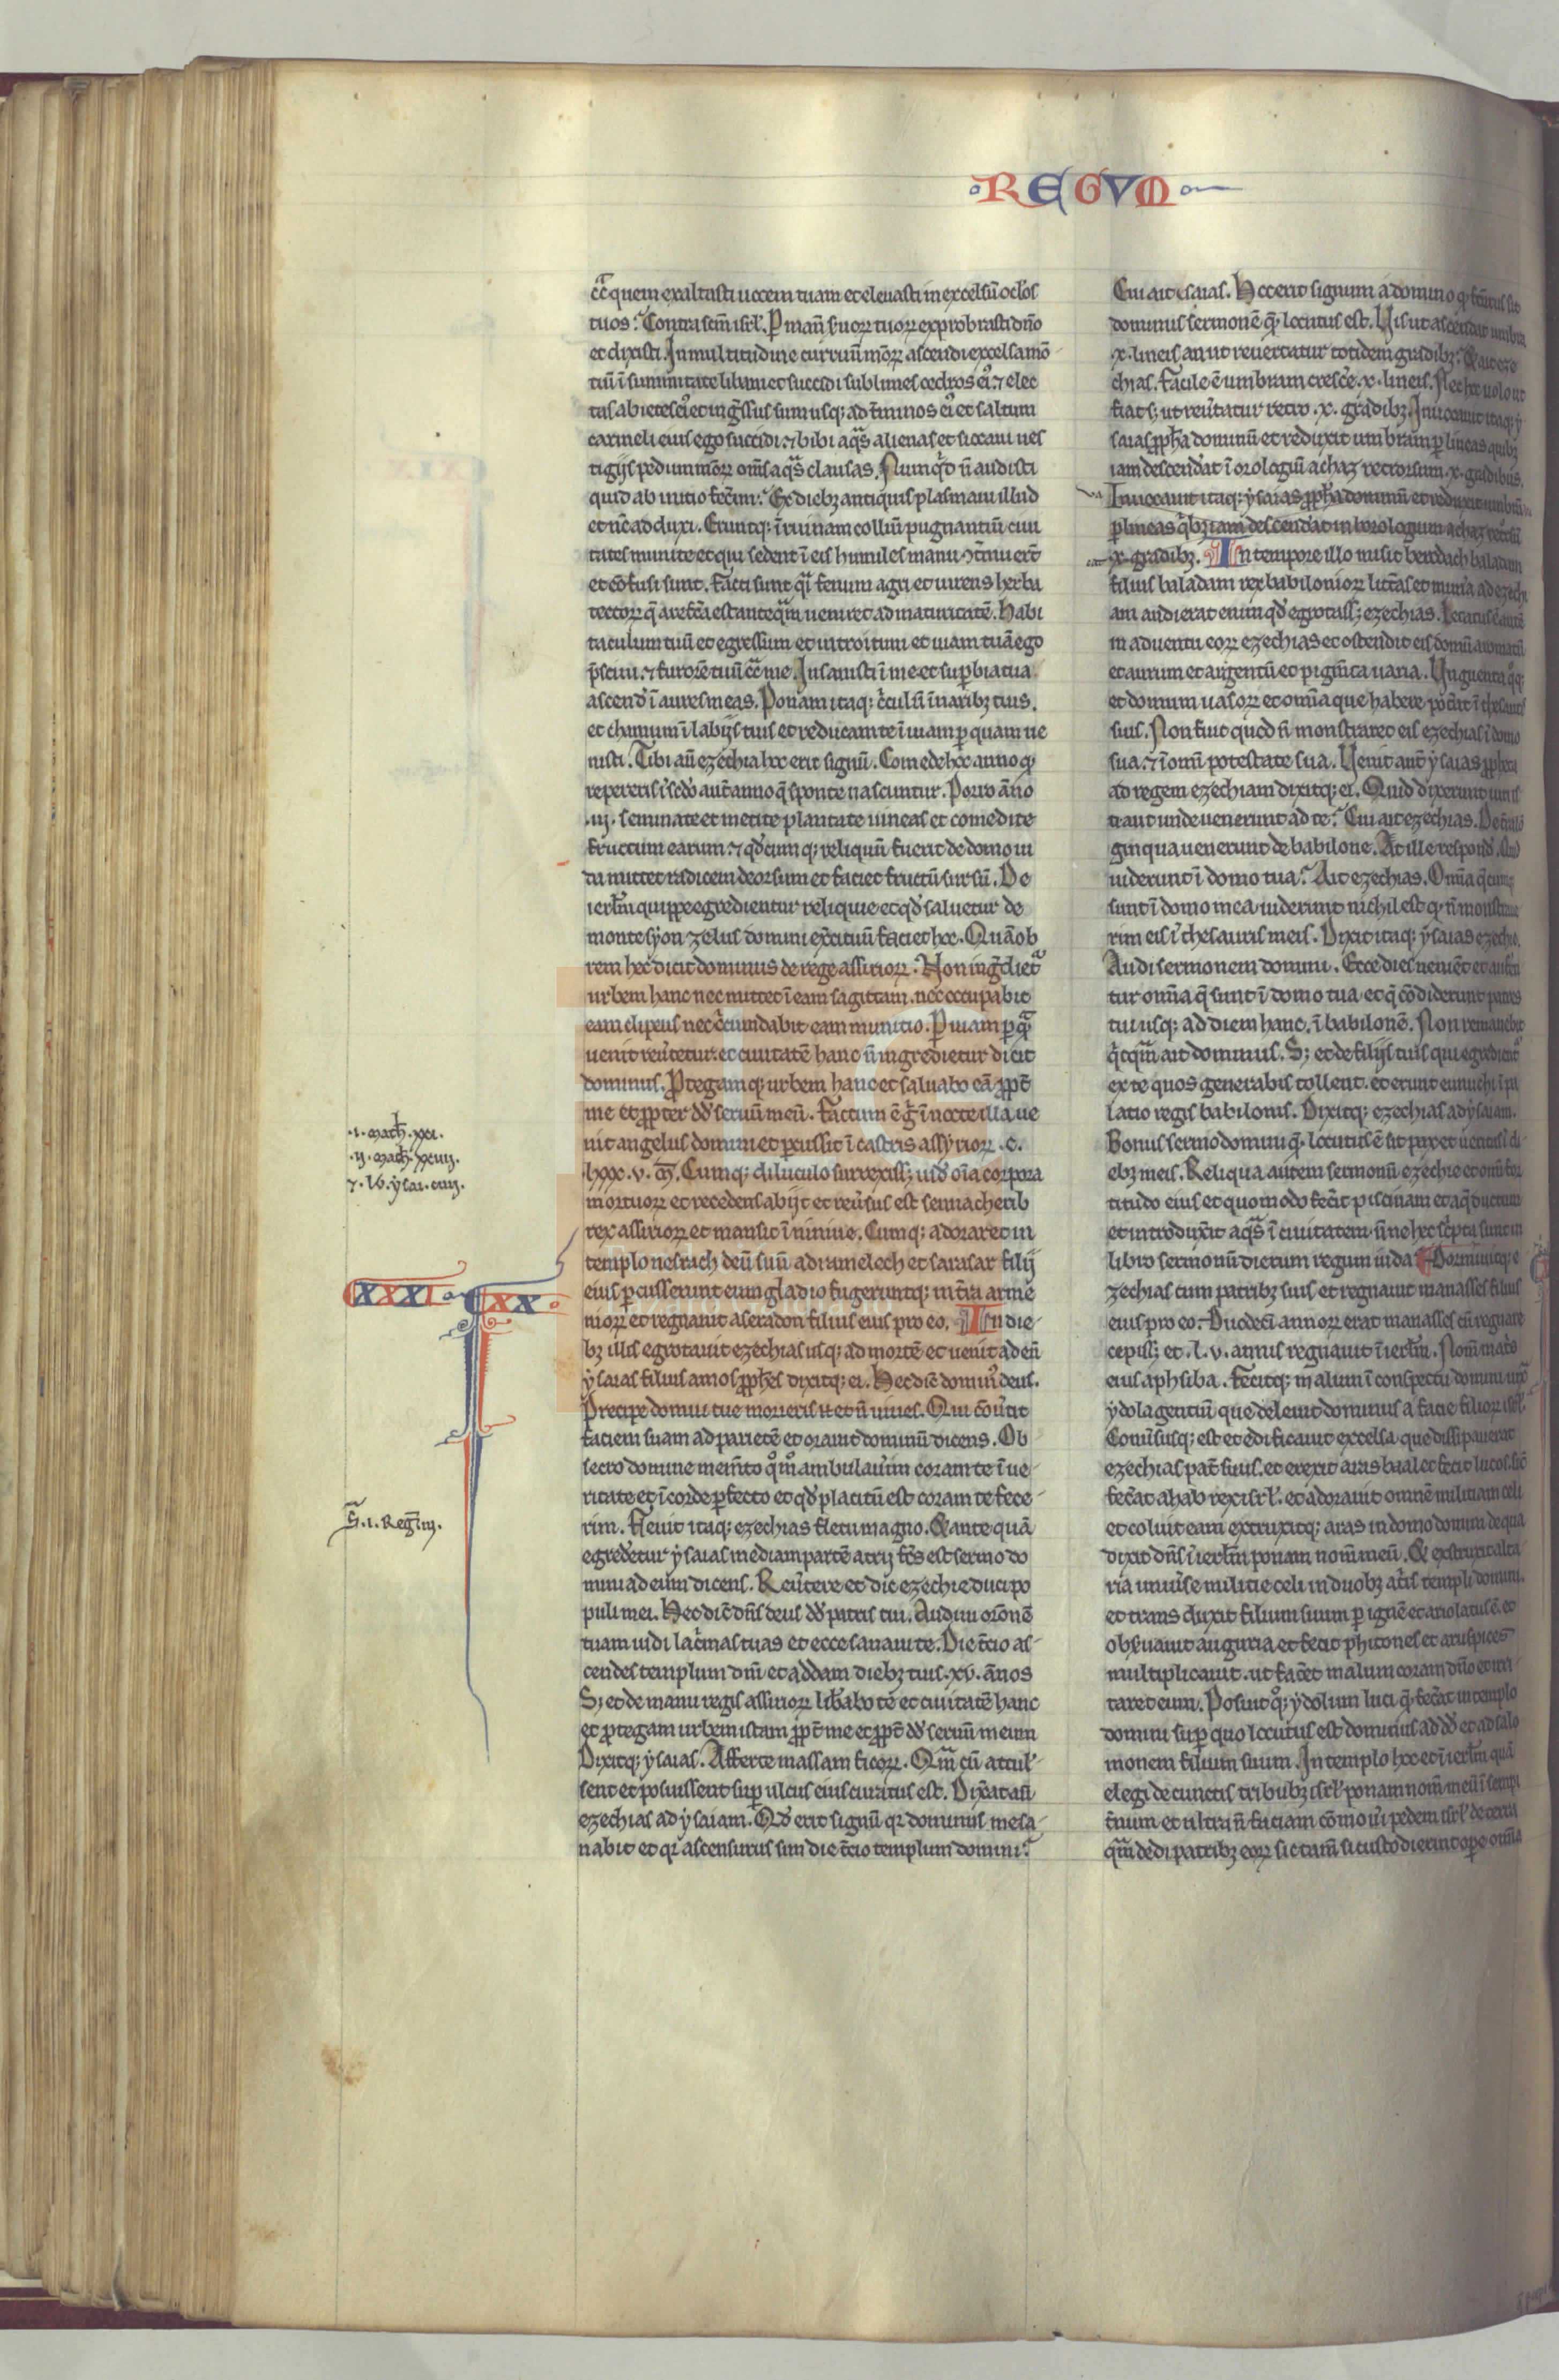 REGVM
cͨ quem exaltasti uocem tuam et eleuasti in excelsū oc̄los
tuos? Contra sc̄m isrl'. P manū s̄uoꝝ tuoꝝ exprobrasti dn̄o
et dixisti. In multitudine curruū moꝝ ascendi excelsa mō
tiū ī summitate libani et succidi sublimes cedros eiꝰ ⁊ elec
tas abietes eiꝰ et īgressus sum usq; ad t̄minos eiꝰ et saltum
carmeli eius ego succidi ⁊ bibi aqͣs alienas et siccaui ues
tigijs pedum moꝝ om̄s aqͣs clausas. Numqͥd n̄ audisti
quid ab initio fec̄im? Ex diebꝫ antiquis plasmaui illud
et nc̄ adduxi. Eruntq; ī ruinam colliū pugnantiū ciui
tates munite et qui sedent ī eis humiles manu ꝯt̄muer̄t
et cōfusi sunt. Facti sunt qͣi fenum agri et uirens herba
tectoꝝ q̄ arefc̄a est anteqͣm ueniret ad maturitatē. Habi
taculum tuū et egressum et introitum et uiam tuā ego
p̄sciui. ⁊ furorē tuū cͨ me. Insanisti ī me et supbia tua
ascend' ī aures meas. Ponam itaq; cͥculū ī naribꝫ tuis.
et chamum ī labijs tuis et reducam te ī uiam p quam ue
nisti. Tibi aū ezechia hoc erit signū. Comede hoc anno qͦ
repereris ī sc̄do aut̄ anno q̄ sponte nascuntur. Porro āno
.iij. seminate et metite plantate uineas et comedite
fructum earum. ⁊ qd'cumq; reliquū fuerit de domo iu
da mittet radicem deorsum et faciet fructū sursū. De
ierlm̄ quippe egredientur reliquie et qd' saluetur de
monte syon zelus domini exc̄ituū faciet hoc. Quā ob
rem hec dicit dominus de rege assirioꝝ. Non īgͣdietͬ
urbem hanc nec mittet ī eam sagittam. nec occupabit
eam clipeus nec cͥcundabit eam munitio. P uiam p qͣ
uenit reūtetur. et ciuitatē hanc n̄ ingredietur dicit
dominus. Ptegamq; urbem hanc et saluabo eā ppt̄
me et ppter dd' seruū meū. Factum ē gͥ ī nocte illa ue
nit angelus domini et pcussit ī castris assyrioꝝ .c.
lxxx.v. m̄. Cumq; diluculo surrexiss; uid' oīa corpora
mortuoꝝ et recedens abijt et reūsus est sennacherib
rex assirioꝝ et mansit ī niniue. Cumq; adoraret in
templo nesrach deū suū adramelech et sarasar filij
eius pcusserunt eum gladio fugeruntq; in t̄ra arme
nioꝝ et regnauit aseradon filius eius pro eo. In die
bꝫ illis egrotauit ezechias usq; ad mortē et uenit ad eū
ysaias filius amos pphes dixitq; ei. Hec dic̄ dominꝰ deus.
Precipe domui tue morieris .n. et n̄ uiues. Qui cōutit
faciem suam ad parietē et orauit dominū dicens. Ob
secro domine mem̄to qͦm̄ ambulaūim coram te ī ue
ritate et ī corde pfecto et qd' placitū est coram te fece
rim. Fleuit itaq; ezechias fletu magno. Et ante quā
egred'etur ysaias mediam partē atrij fc̄s est sermo do
mini ad eum dicens. Reūtere et dic ezechie duci po
puli mei. Hec dic̄ dn̄s deus dd' patris tui. Audiui or̄onē
tuam uidi lacͥmas tuas et ecce sanaui te. Die t̄cio as
cendes templum dn̄i et addam diebꝫ tuis .xv. ānos
S; et de manu regis assirioꝝ lib̄abo te et ciuitatē hanc
et ptegam urbem istam ppt̄ me et ppt̄ dd' seruū meum
Dixitq; ysaias. Afferte massam ficoꝝ. Qͣm cū attul'
sent et posuissent sup ulcus eius curatus est. Dixat aū
ezechias ad ysaiam. Qd' erit signū qͥ dominus me sa
nabit et qͥ ascensurus sum die t̄cio templum domini?
.i. mach'. xxi.
.ij. mach'. xxiiij.
⁊ .lb. ysai. ciiij.
XXXI XX
.i. Reg. iij.
Cui ait isaias. Hoc erit signum a domino qͦ fcūrus sit
dominus sermonē q̄ locutus est. Uis ut ascendat umbra
.x. lineis an ut reuertatur totidem gͣdibꝫ? Et ait eze
chias. Facile ē umbram cresc̄e .x. lineis. Nec hoc uolo ut
fiat s; ut reūtatur retro .x. gradibꝫ. Inuocauit itaq; y
saias ppha dominū et reduxit umbram p lineas quibꝫ
iam descend'at ī orologiū achaz retrorsum .x. gͣdibus.
Inuocauit itaq; ysaias ppha dominū et reduxit umbrā
p lineas qͥbꝫ iam descend'at in horologium achaz ret̄rsū
.x. gradibꝫ. In tempore illo misit berodach baladam
filius baladam rex babilonioꝝ litt̄as et mun̄a ad ezechi
am audierat enim qd' egrotass; ezechias. Letatus ē autē
in aduentu eoꝝ ezechias et ostendit eis domū aromatū
et aurum et argentū et pigm̄ta uaria. Unguenta qͦq;
et domum uasoꝝ et om̄ia que habere pot̄at ī thesauris
suis. Non fuit quod n̄ monstraret eis ezechias ī domo
sua. ⁊ ī omī potestate sua. Uenit aut̄ ysaias ppheta
ad regem ezechiam dixitq; ei. Quid dixerunt uiri isti
aut unde uenerunt ad te? Cui ait ezechias. De t̄ra lō
ginqua uenerunt de babilone. At ille respond'. Quid
uiderunt ī domo tua? Ait ezechias. Om̄ia q̄cumq;
sunt ī domo mea uiderunt nichil est qͦ n̄ monstraue
rim eis ī thesauris meis. Dixit itaq; ysaias ezechie.
Audi sermonem domini. Ecce dies ueniēt et aufen
tur om̄ia q̄ sunt ī domo tua et q̄ cōdiderunt patres
tui usq; ad diem hanc. ī babilonē. Non remanebit
qͥcqͣm ait dominus. S; et de filijs tuis qui egredientͬ
ex te quos generabis tollent. et erunt eunuchi ī pa
latio regis babilonis. Dixitq; ezechias ad ysaiam.
Bonus sermo domini q̄ locutus ē sit pax et ueritas ī di
ebꝫ meis. Reliqua autem sermonū ezechie et om̄is for
titudo eius et quomodo fec̄it piscinam et aqͣductum
et introduxit aqͣs ī ciuitatem n̄ne hec sc̄pta sunt in
libro sermonū dierum regum iuda? Dormiuitq; e
zechias cum patribꝫ suis et regnauit manasses filius
eius pro eo. Duodeci annoꝝ erat manasses cū regnare
cepiss; et .l.v. annis regnauit ī ierlm̄. Nom̄ mat̄s
eius aphsiba. Fecitq; malum ī conspectu domini iuxͣ
ydola gentiū que deleuit dominus a facie filioꝝ isrl'.
Conūsusq; est et edificauit excelsa que dissipauerat
ezechias pat̄ suus. et erexit aras baal et fecit lucos. sic̄
fec̄at ahab rex isrl'. et adorauit omnē militiam celi
et coluit eam extruxitq; aras in domo domini de qua
dixit dn̄s ī ierlm̄ ponam nom̄ meū. Et exstruxit alta
ria uniūse militie celi in duobꝫ at̄is templi domini.
et transduxit filium suum p ignē et ariolatus ē. et
obs̄uauit auguria et fecit phitones et aruspices
multiplicauit. ut fac̄et malum coram dn̄o et irri
taret eum. Posuit qͦq; ydolum luci q̄ fec̄at in templo
domini sup quo locutus est dominus ad dd' et ad salo
monem filium suum. In templo hoc et ī ierlm̄ quā
elegi de cunctis tribubꝫ isrl' ponam nom̄ meū ī sempi
t̄num et ultra n̄ faciam cōmoūi pedem isrl' de terra
qͣm dedi patribꝫ eoꝝ sic tam̄ si custodierint ope om̄ia